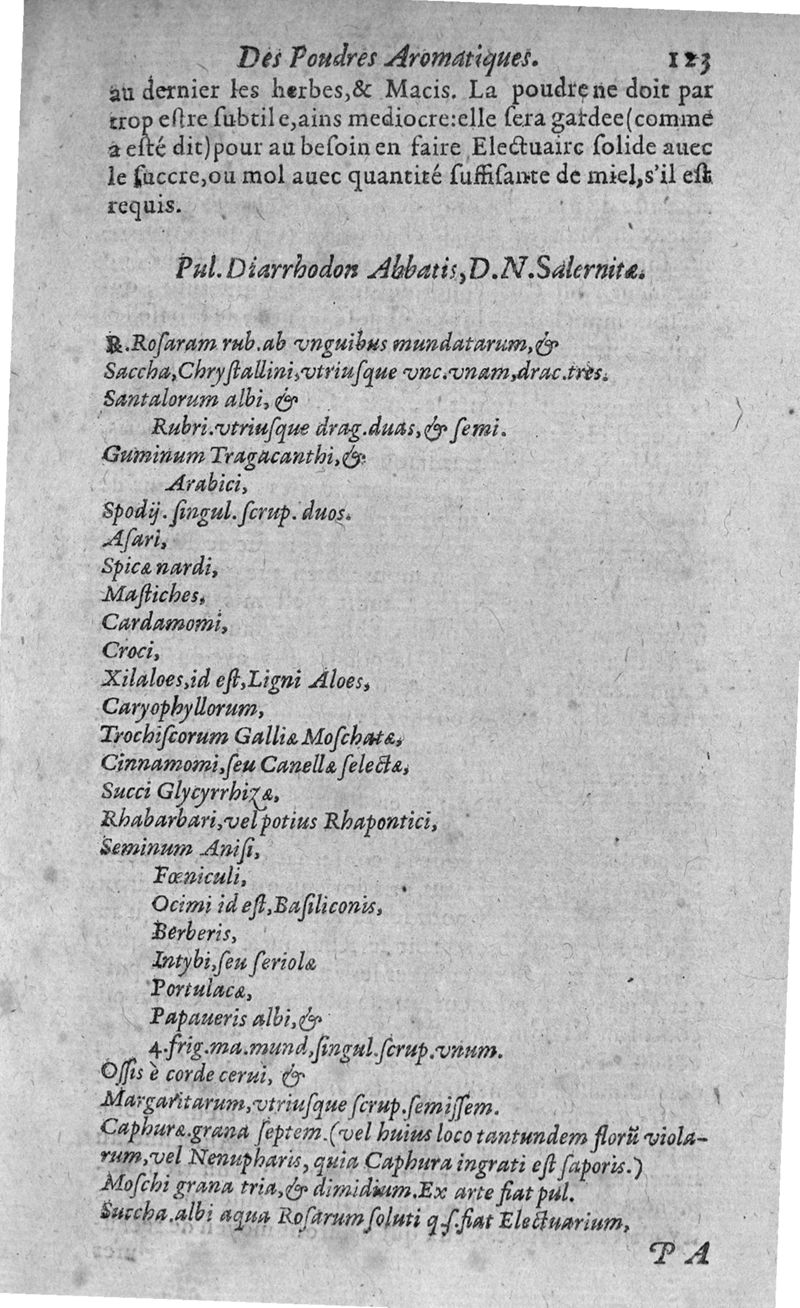 Des Poudres Aromatiques. 123
au dernier les herbes,& Macis. La poudre ne doit par
trop eſtre ſubtile,ains mediocre:elle ſera gardee(comme
a eſté dit)pour au beſoin en faire Electuaire ſolide auec
le ſuccre,ou mol auec quantité ſuffiſante de miel,s'il eſt
requis.
Pul. Diarrhodon Abbatis,D.N.Salernitæ.
℞.Roſaram rub.ab vnguibus mundatarum,&
Saccha,Chryſtallini,vtriuſque vnc.vnam,drac.tres.
Santalorum albi, &
Rubri.vtriuſque drag.duas,& ſemi.
Guminum Tragacanthi,&
Arabici,
Spodij. ſingul. ſcrup. duos.
Aſari,
Spicæ nardi,
Maſtiches,
Cardamomi,
Croci,
Xilaloes,id eſt,Ligni Aloes,
Caryophyllorum,
Trochiſcorum Galliæ Moſchatæ,
Cinnamomi,ſeu Canellæ ſelectæ,
Succi Glycyrrhizæ,
Rhabarbari,vel potius Rhapontici,
Seminum Aniſi,
Fœniculi,
Ocimi id eſt,Baſiliconis,
Berberis,
Intybi,ſeu ſeriolæ
Portulacæ,
Papaueris albi,&
4.frig.ma.mund,ſingul.ſcrup.vnum.
Oſſis è corde cerui, &
Margaritarum,vtriuſque ſcrup.ſemiſſem.
Caphuræ.grana ſeptem.(vel huius loco tantundem florũ viola-
rum,vel Nenupharis, quia Caphura ingrati eſt ſaporis.)
Moſchi grana tria,& dimidium.Ex arte fiat pul.
Saccha.albi aqua Roſarum ſoluti q.ſ.fiat Electuarium,
P A